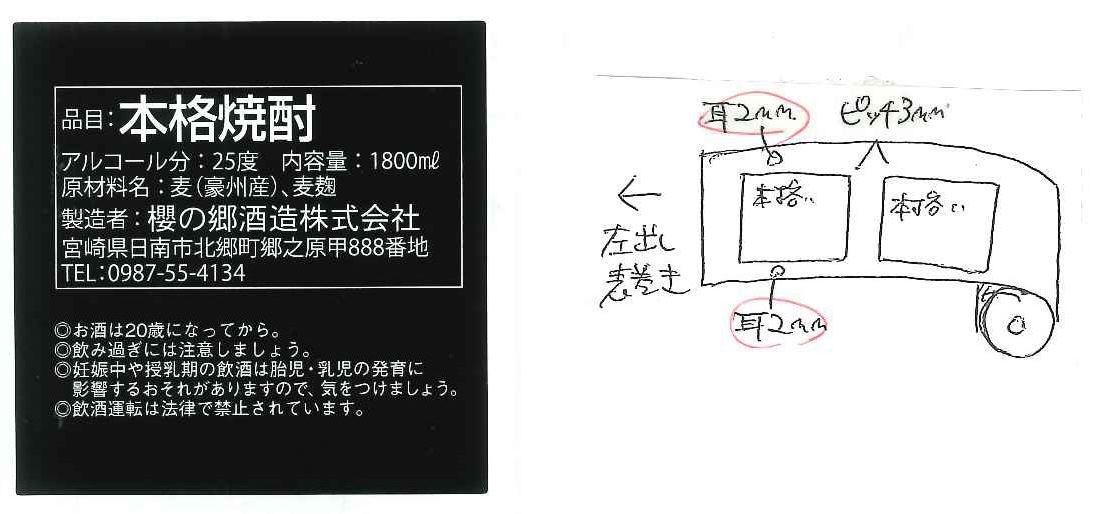 品目：本格焼酎
アルコール分：25度　内容量：1800mℓ
原材料名：麦（豪州産）、麦麹
製造者：櫻の郷酒造株式会社
宮崎県日南市北郷町郷之原甲888番地
TEL：0987-55-4134
◎お酒は20歳になってから。
◎飲み過ぎには注意しましょう。
◎妊娠中や授乳期の飲酒は胎児・乳児の発育に
影響するおそれがありますので、気をつけましょう。
◎飲酒運転は法律で禁止されています。
耳2mm
ピッチ3mm
←
左出し
表巻き
本格
本格
耳2mm